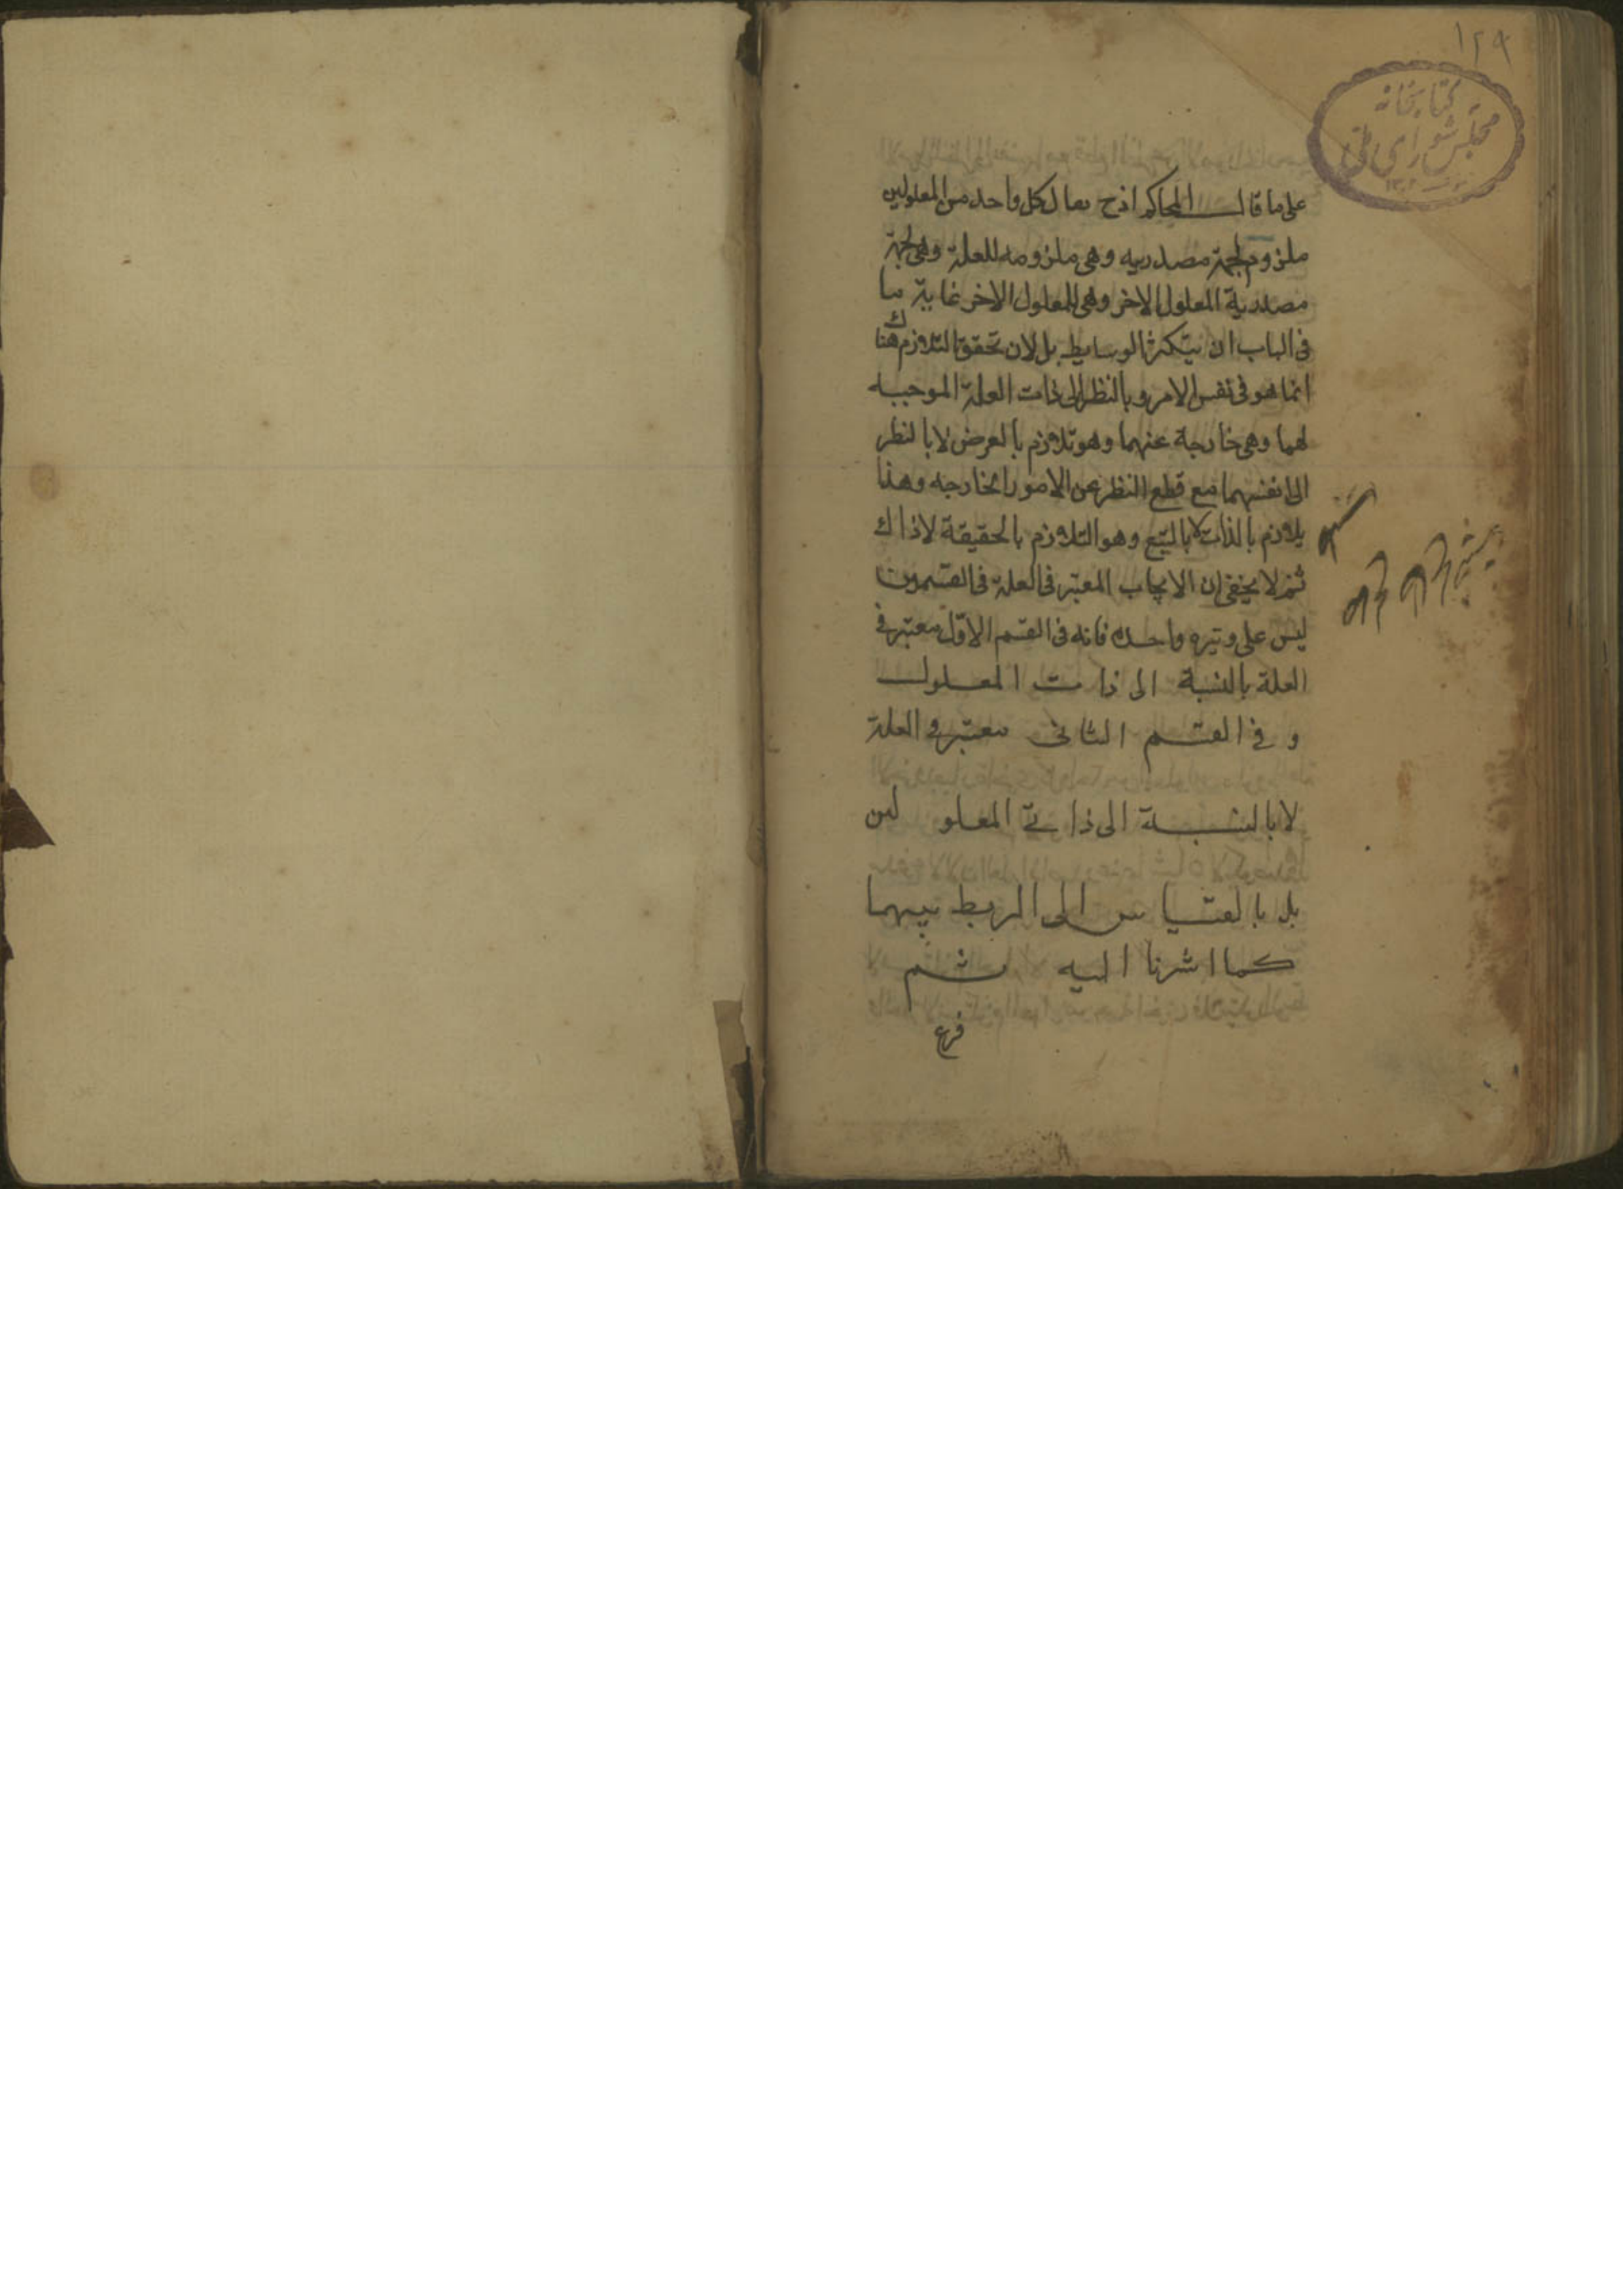 ١٢٩
كتابخانه
مجلس شورای ملی
على ما قال المحاكم اذ ح يقال كل واحد من المعلولين
ملزوم لجهة مصدريه وهى ملزومه للعلة وهى لجهة
مصدرية المعلول الاخر وهى للمعلول الاخر غاية ما
فى الباب ان يتكثر الوسايط بل لان تحقق التلازم هناك
انما هو فى نفس الامر وبالنظر الى ذات العلة الموجبه
لهما وهى خارجة عنهما وهو تلازم بالعرض لا بالنظر
الى انفسهما مع قطع النظر عن الامور الخارجه وهذا
تلازم بالذات لا بالتبع وهو التلازم بالحقيقة لا ذاك
ثم لا يخفى ان الايجاب المعتبر فى العلة فى القسمين
ليس على وتيره واحده فانه فى القسم الاوّل معتبر فى
العلة بالنسبة الى ذات المعلول
و فى القسم الثانى معتبر فى العلة
لا بالنسبة الى ذاتى المعلولين
بل بالقياس الى الربط بينهما
كما اشرنا اليه ثم
فرغ